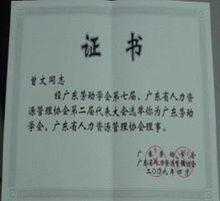 证书
曾文同志
经广东劳动学会第七届、广东省人力资
源管理协会第二届代表大会选举你为广东劳动
学会、广东省人力资源管理协会理事。
广东劳动学会
广东省人力资源管理协会
二〇〇九年四月